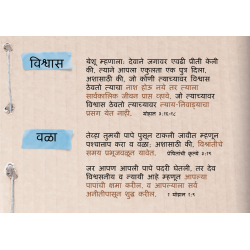 विश्वास
येशू म्हणाला, देवाने जगावर एवढी प्रीती केली
की, त्याने आपला एकुलता एक पुत्र दिला,
अशासाठी की, जो कोणी त्याच्यावर विश्वास
ठेवतो त्याचा नाश होऊ नये तर त्याला
सार्वकालिक जीवन प्राप्त व्हावे. जो त्याच्यावर
विश्वास ठेवतो त्याच्यावर न्याय-निवाड्याचा
प्रसंग येत नाही. योहान ३:१६,१८
वळा
तेव्हा तुमची पापे पुसून टाकली जावीत म्हणून
पश्चाताप करा व वळा; अशासाठी की, विश्रांतीचे
समय प्रभूजवळून यावेत. प्रेषितांची कृत्ये ३:१९
जर आपण आपली पापे पदरी घेतली, तर देव
विश्वसनीय व न्यायी आहे म्हणून आपल्या
पापांची क्षमा करील, व आपल्याला सर्व
अनीतीपासून शुद्ध करील. १ योहान १:९